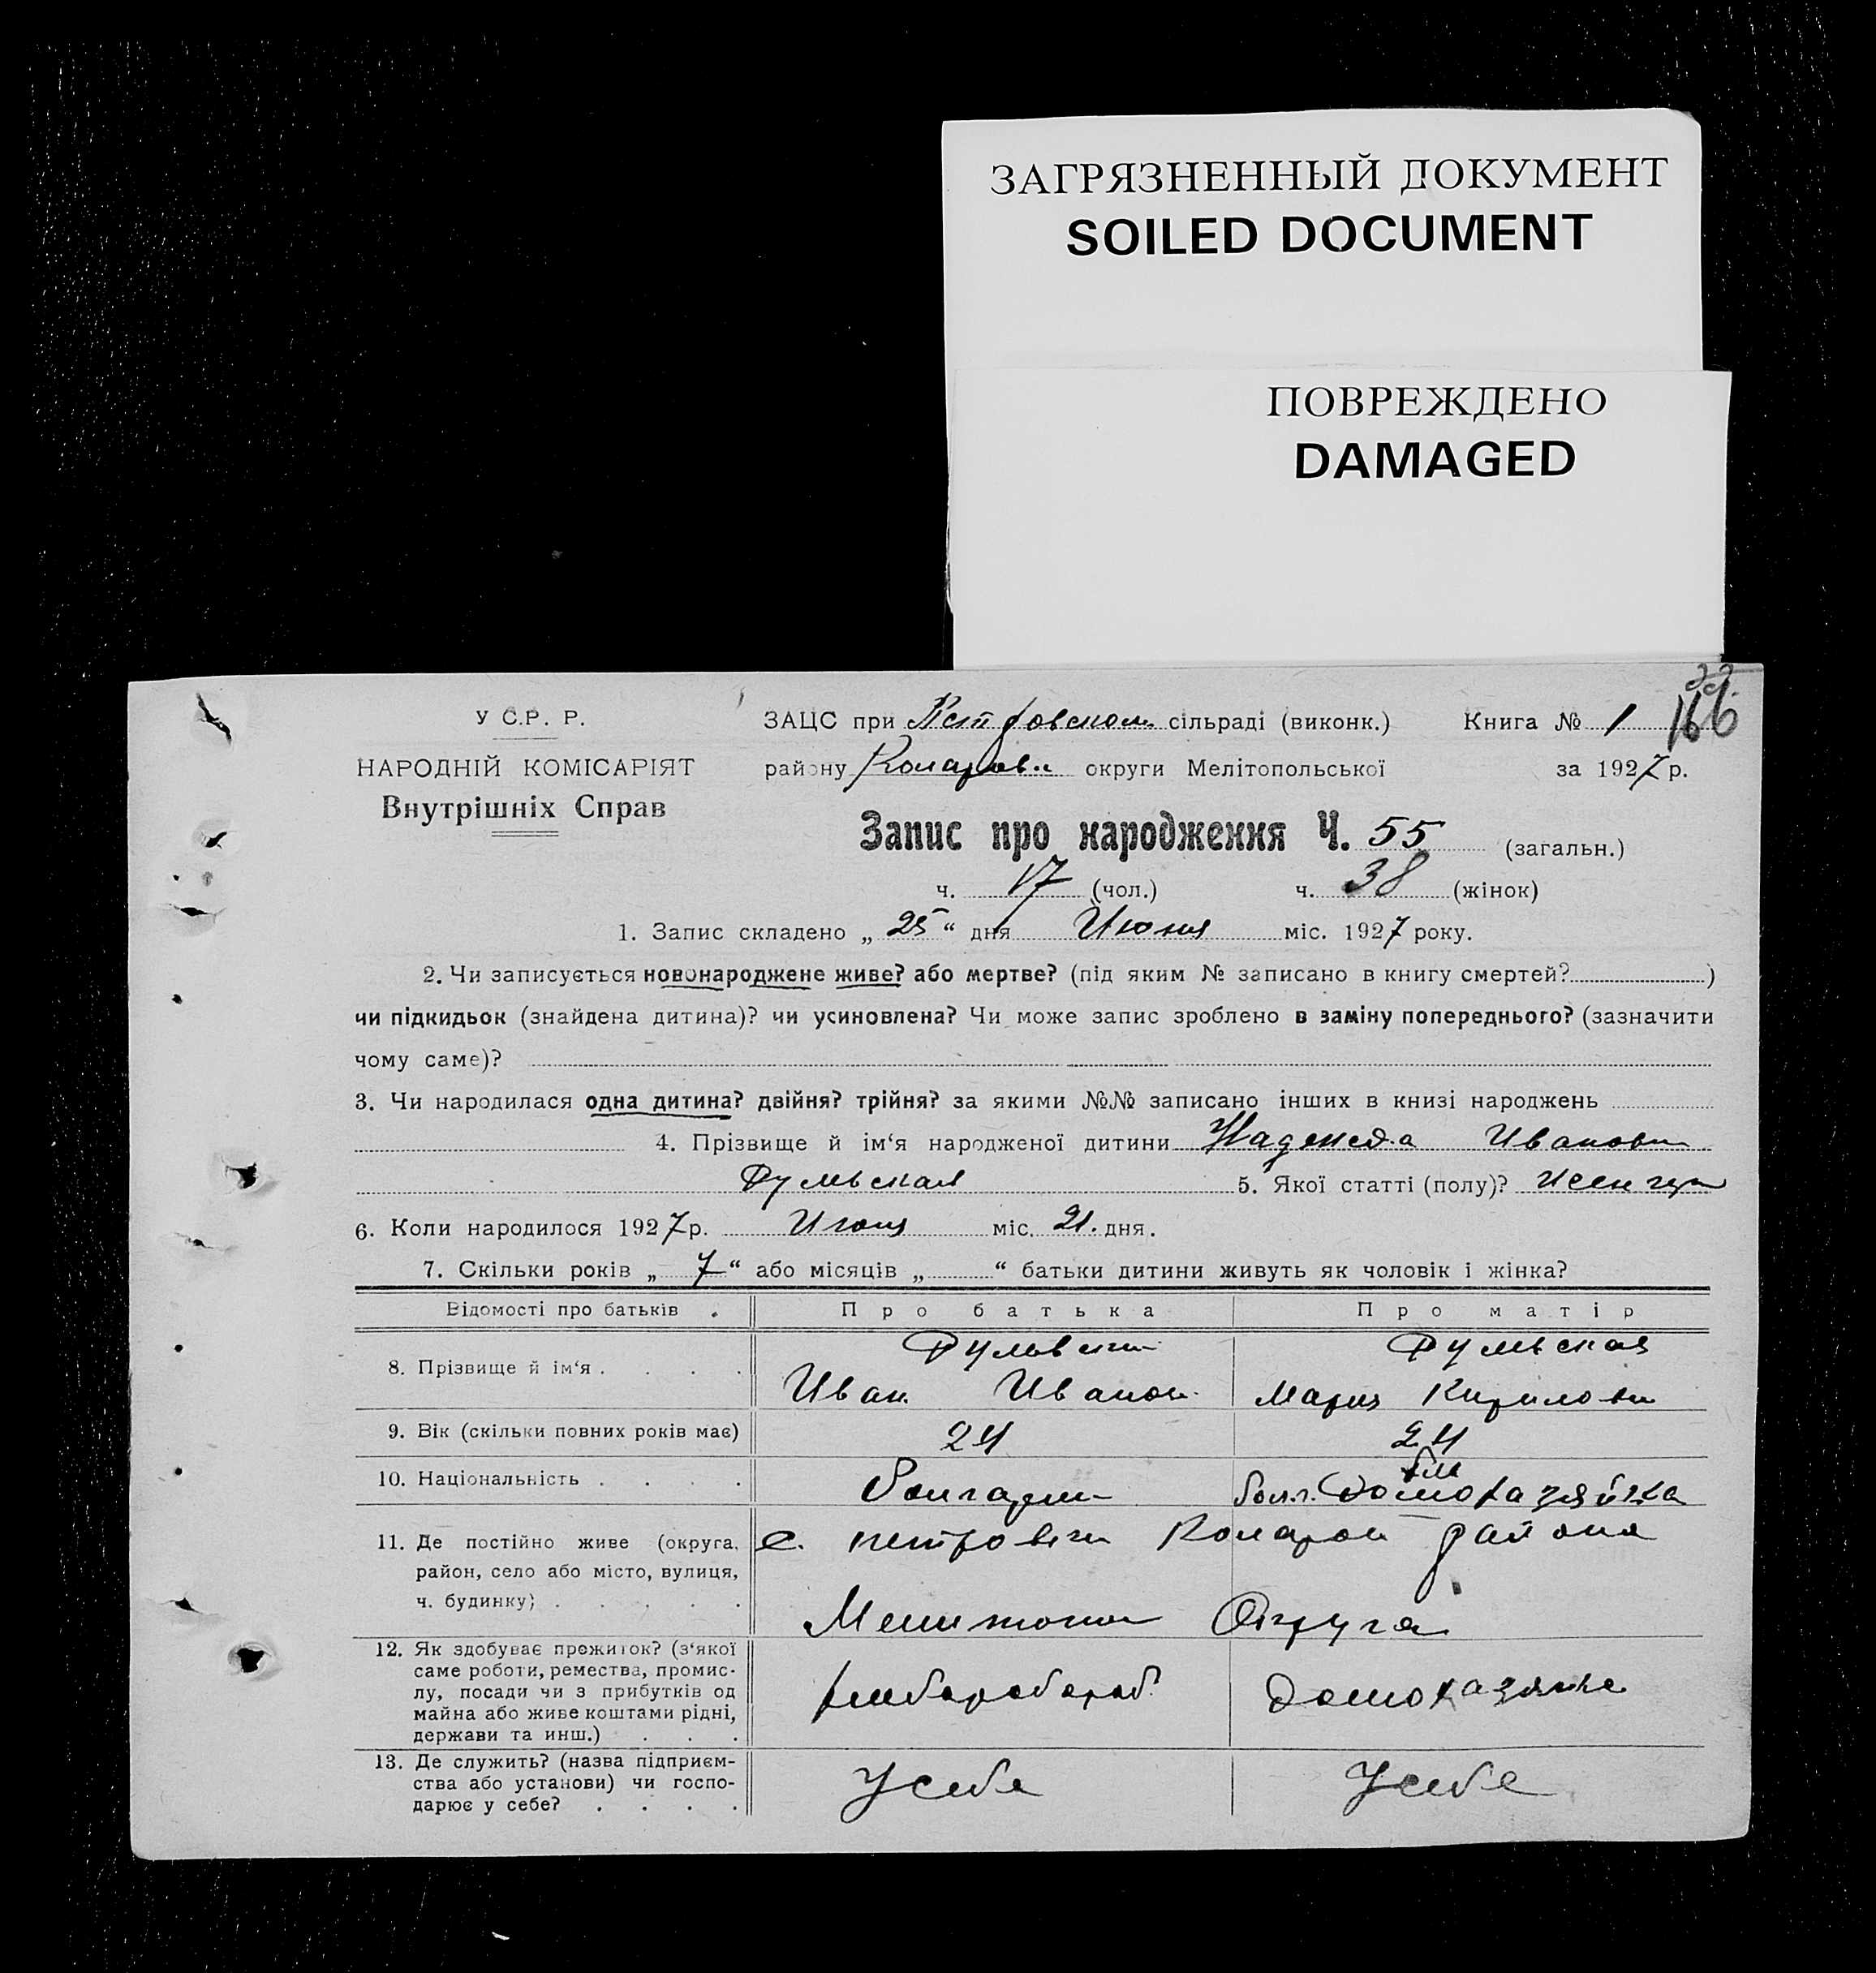 ЗАГРЯЗНЕННЫЙ ДОКУМЕНТ
SOILED DOCUMENT
ПОВРЕЖДЕНО
DAMAGED
166
У С.Р. Р.
НАРОДНІЙ КОМІСАРІЯТ
Внутрішніх Справ
ЗАЦС при Петровском сільраді (виконк.) Книга № 1
району Коларов. округи Мелітопольської за 1927 р.
Запис про народження Ч. 55 (загальн.)
ч. 17 (чол.) ч. 38 (жінок)
1. Запис складено „ 25 “ дня Июня міс. 1927 року.
2. Чи записується новонароджене живе? або мертве? (під яким № записано в книгу смертей? )
чи підкидьок (знайдена дитина)? чи усиновлена? Чи може запис зроблено в заміну попереднього? (зазначити
чому саме)?
3. Чи народилася одна дитина? двійня? трійня? за якими №№ записано інших в книзі народжень
4. Прізвище й ім‘я народженої дитини Надежда Ивановн
5. Якої статті (полу)? женщин
6. Коли народилося 1927 р. Июня міс. 21. дня.
7. Скільки років „ 7 “ або місяців „ “ батьки дитини живуть як чоловік і жінка?
Відомості про батьків . Про батька Про матір
8. Прізвище й ім‘я . . . .
Иван Иванов. Мария Кириловн
9. Вік (скільки повних років має) 24 24
10. Національність . . . . Болгарин болг. домохазяйка
11. Де постійно живе (округа, район, село або місто, вулиця, ч. будинку) . . . . .
с. Петровки Коларов района
Мелитопол Округа
12. Як здобуває прожиток? (з‘якої саме роботи, ремества, промислу, посади чи з прибутків од майна або живе коштами рідні, держави та инш.) . . .
хлебороб домохазяйке
13. Де служить? (назва підприємства або установи) чи господарює у себе? . . . .
У себе У себе